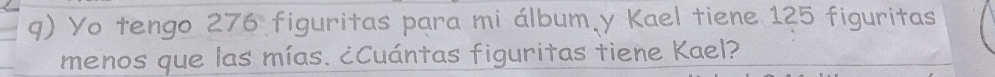 q) Yo tengo 276 figuritas para mi álbum, y Kael tiene 125 figuritas
menos que las mías. ¿Cuántas figuritas tiene Kael?